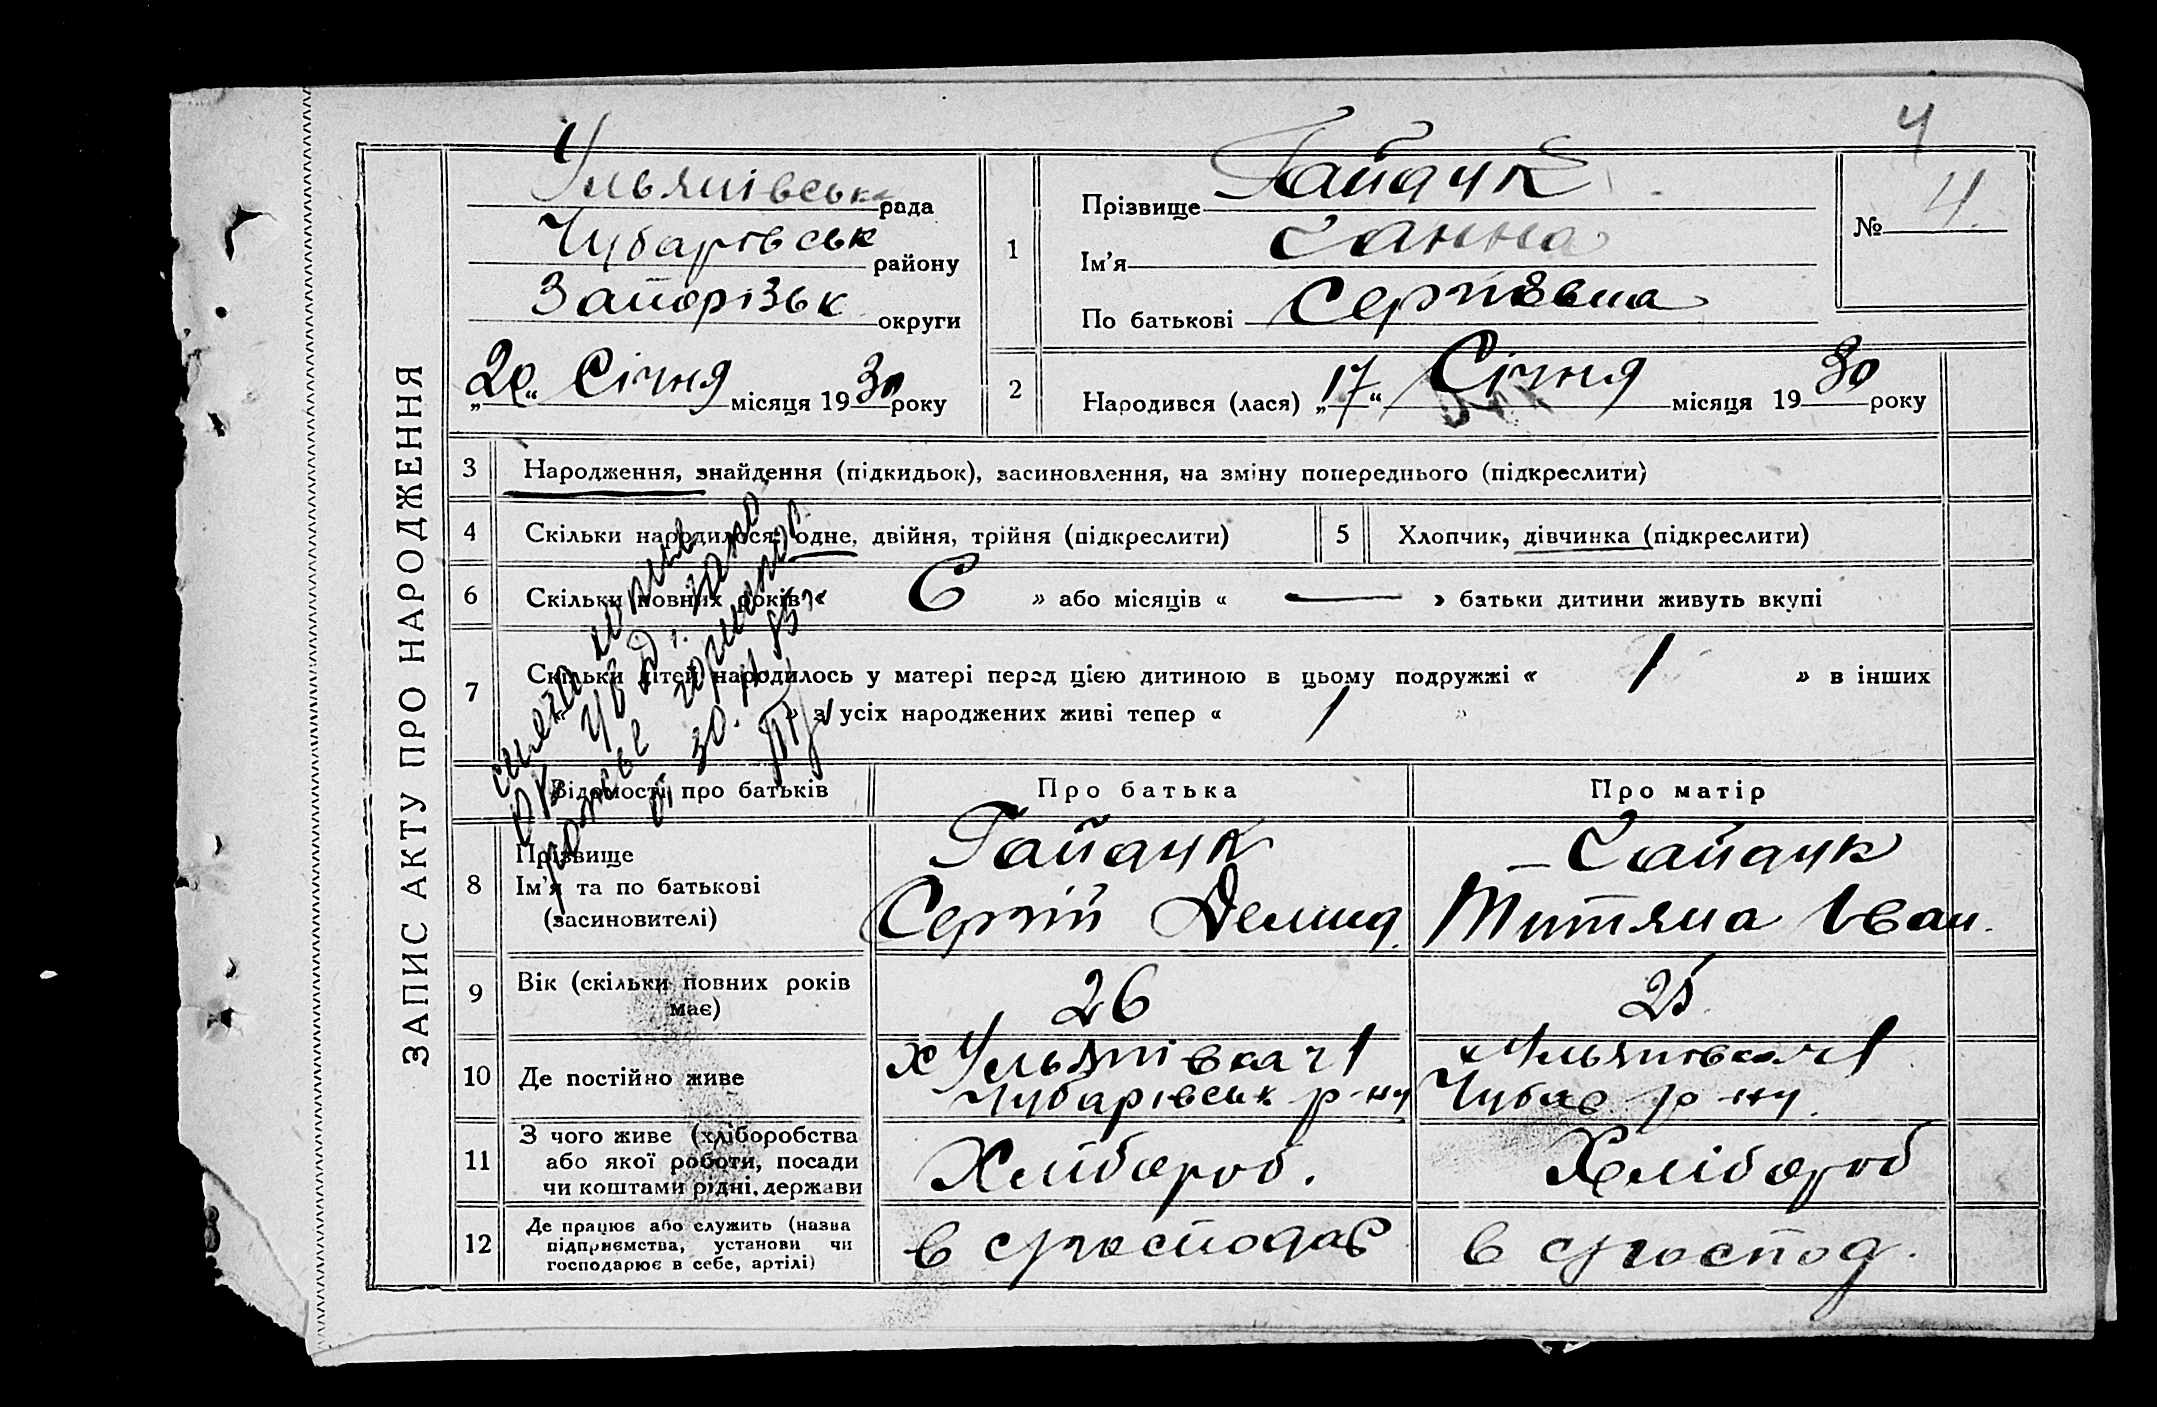 4
ЗАПИС АКТУ ПРО НАРОДЖЕННЯ
Ульянівськ рада
Чубарівськ району
Запорізьк округи
„20“ Січня місяця 1930 року
1 Прізвище Гайдук
Ім'я Ганна
По батькові Сергіївна
№ 4.
2 Народився (лася) „17“ Січня місяця 1930 року
3 Народження, знайдення (підкидьок), засиновлення, на зміну попереднього (підкреслити)
4 Скільки народилося: одне, двійня, трійня (підкреслити) 5 Хлопчик, дівчинка (підкреслити)
6 Скільки повних років « 6 » або місяців « — » батьки дитини живуть вкупі
7 Скільки дітей народилось у матері перед цією дитиною в цьому подружжі « 1 » в інших
« » з усіх народжених живі тепер « 1 »
Відомості про батьків Про батька Про матір
8 Прізвище Гайдук Гайдук
Ім'я та по батькові Сергій Демид. Титяна Іван.
(засиновителі)
9 Вік (скільки повних років має) 26 25
10 Де постійно живе х Ульянівка ч 1 х Ульянівка ч 1
Чубарівськ р-ну Чубар р-ну.
11 З чого живе (хліборобства
або якої роботи, посади Хлібороб. Хлібороб
чи коштами рідні, держави
12 Де працює або служить (назва
підприємства, установи чи в с/господар в с/господ.
господарює в себе, артілі)